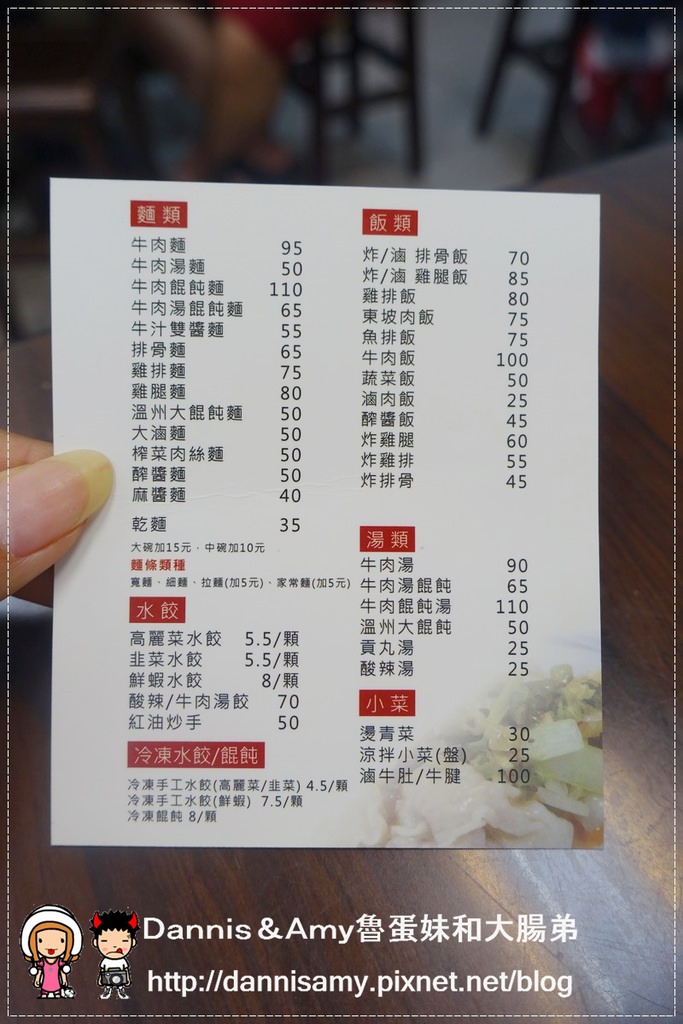 麵類
牛肉麵 95
牛肉湯麵 50
牛肉餛飩麵 110
牛肉湯餛飩麵 65
牛汁雙醬麵 55
排骨麵 65
雞排麵 75
雞腿麵 80
溫州大餛飩麵 50
大滷麵 50
榨菜肉絲麵 50
醡醬麵 50
麻醬麵 40
乾麵 35
大碗加15元、中碗加10元
麵條類種
寬麵、細麵、拉麵(加5元)、家常麵(加5元)
水餃
高麗菜水餃 5.5/顆
韭菜水餃 5.5/顆
鮮蝦水餃 8/顆
酸辣/牛肉湯餃 70
紅油炒手 50
冷凍水餃/餛飩
冷凍手工水餃(高麗菜/韭菜) 4.5/顆
冷凍手工水餃(鮮蝦) 7.5/顆
冷凍餛飩 8/顆
飯類
炸/滷 排骨飯 70
炸/滷 雞腿飯 85
雞排飯 80
東坡肉飯 75
魚排飯 75
牛肉飯 100
蔬菜飯 50
滷肉飯 25
醡醬飯 45
炸雞腿 60
炸雞排 55
炸排骨 45
湯類
牛肉湯 90
牛肉湯餛飩 65
牛肉餛飩湯 110
溫州大餛飩 50
貢丸湯 25
酸辣湯 25
小菜
燙青菜 30
涼拌小菜(盤) 25
滷牛肚/牛腱 100
Dannis＆Amy魯蛋妹和大腸弟
http://dannisamy.pixnet.net/blog